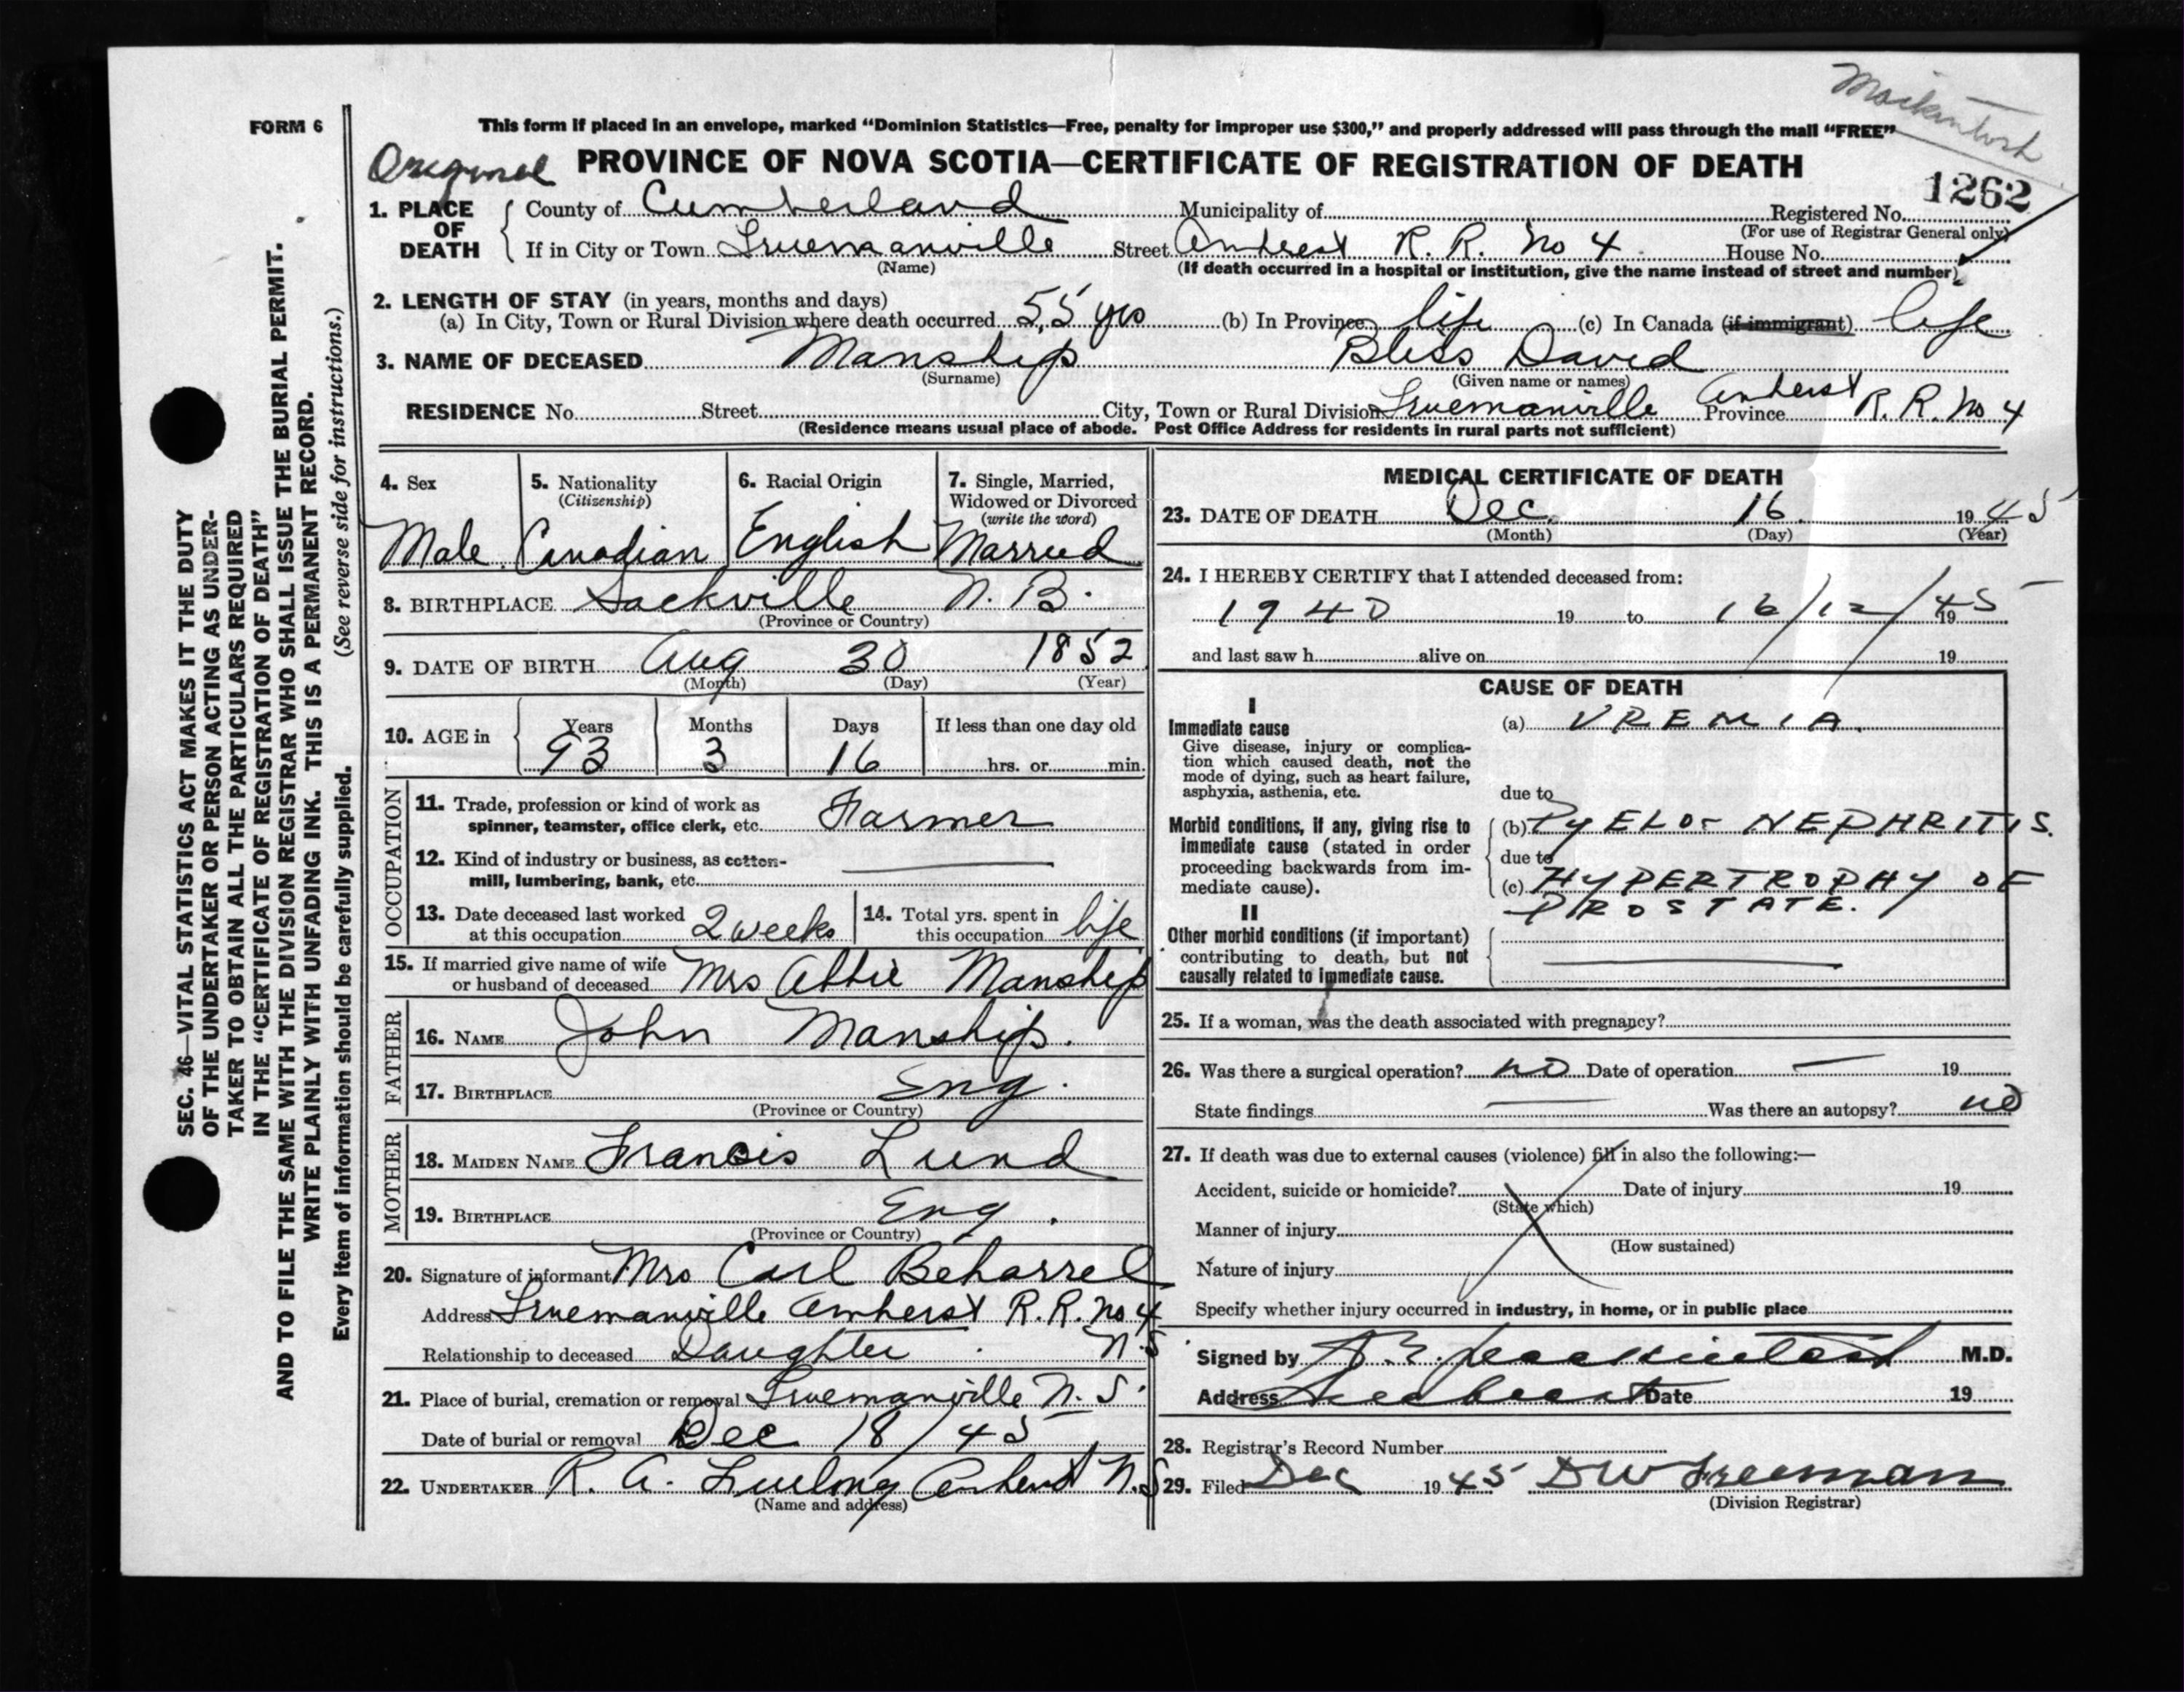 Mackintosh
FORM 6
This form if placed in an envelope, marked “Dominion Statistics—Free, penalty for improper use $300,” and properly addressed will pass through the mail “FREE”
Original PROVINCE OF NOVA SCOTIA—CERTIFICATE OF REGISTRATION OF DEATH
1262
1. PLACE OF DEATH County of Cumberland Municipality of Registered No.
(For use of Registrar General only)
If in City or Town Truemanville Street Amherst R. R. No 4 House No.
(Name) (If death occurred in a hospital or institution, give the name instead of street and number)
2. LENGTH OF STAY (in years, months and days)
(a) In City, Town or Rural Division where death occurred 55 yrs (b) In Province life (c) In Canada (if immigrant) life
3. NAME OF DECEASED Manship Bliss David
(Surname) (Given name or names)
RESIDENCE No. Street City, Town or Rural Division Truemanville Province Amherst R. R. No 4
(Residence means usual place of abode. Post Office Address for residents in rural parts not sufficient)
4. Sex 5. Nationality (Citizenship) 6. Racial Origin 7. Single, Married, Widowed or Divorced (write the word)
Male Canadian English Married
8. BIRTHPLACE Sackville N. B.
(Province or Country)
9. DATE OF BIRTH Aug 30 1852
(Month) (Day) (Year)
10. AGE in Years Months Days If less than one day old
93 3 16 hrs. or min.
OCCUPATION
11. Trade, profession or kind of work as
spinner, teamster, office clerk, etc. Farmer
12. Kind of industry or business, as cotton-
mill, lumbering, bank, etc.
13. Date deceased last worked at this occupation 2 weeks 14. Total yrs. spent in this occupation life
15. If married give name of wife
or husband of deceased Mrs Abbie Manship
FATHER
16. NAME John Manship.
17. BIRTHPLACE Eng.
(Province or Country)
MOTHER
18. MAIDEN NAME Francis Lund
19. BIRTHPLACE Eng.
(Province or Country)
20. Signature of informant Mrs Carl Beharrel
Address Truemanville Amherst R. R. No 4
Relationship to deceased Daughter N.S
21. Place of burial, cremation or removal Truemanville N. S.
Date of burial or removal Dec 18/45
22. UNDERTAKER R. A. Furlong Amherst N.S
(Name and address)
MEDICAL CERTIFICATE OF DEATH
23. DATE OF DEATH Dec. 16. 1945
(Month) (Day) (Year)
24. I HEREBY CERTIFY that I attended deceased from:
1940 19 to 16/12/45 19
and last saw h alive on 19
CAUSE OF DEATH
I
Immediate cause
Give disease, injury or complica-
tion which caused death, not the
mode of dying, such as heart failure,
asphyxia, asthenia, etc.
(a) UREMIA.
due to
Morbid conditions, if any, giving rise to
immediate cause (stated in order
proceeding backwards from im-
mediate cause).
(b) PYELO-NEPHRITIS.
due to
(c) HYPERTROPHY OF
PROSTATE.
II
Other morbid conditions (if important)
contributing to death, but not
causally related to immediate cause.
25. If a woman, was the death associated with pregnancy?
26. Was there a surgical operation? no Date of operation — 19
State findings — Was there an autopsy? no
27. If death was due to external causes (violence) fill in also the following:—
Accident, suicide or homicide? Date of injury 19
(State which)
Manner of injury
(How sustained)
Nature of injury
Specify whether injury occurred in industry, in home, or in public place
Signed by Mackintosh M.D.
Address Amherst Date 19
28. Registrar's Record Number
29. Filed Dec 1945 D W Freeman
(Division Registrar)
SEC. 46—VITAL STATISTICS ACT MAKES IT THE DUTY
OF THE UNDERTAKER OR PERSON ACTING AS UNDER-
TAKER TO OBTAIN ALL THE PARTICULARS REQUIRED
IN THE “CERTIFICATE OF REGISTRATION OF DEATH”
AND TO FILE THE SAME WITH THE DIVISION REGISTRAR WHO SHALL ISSUE THE BURIAL PERMIT.
WRITE PLAINLY WITH UNFADING INK. THIS IS A PERMANENT RECORD.
Every item of information should be carefully supplied. (See reverse side for instructions.)